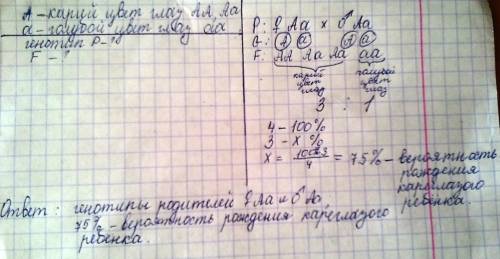 А - карий цвет глаз АА, Аа
а - голубой цвет глаз аа
генотип Р - ?
F - ?
Р: ♀ Аа × ♂ Аа
G: А а А а
F: АА Аа Аа аа
карий цвет глаз
голубой цвет глаз
3 : 1
4 - 100%
3 - х %
х = 100×3 / 4 = 75% - вероятность
рождения
кареглазого
ребенка.
Ответ: генотипы родителей ♀ Аа и ♂ Аа,
75% - вероятность рождения кареглазого
ребенка.